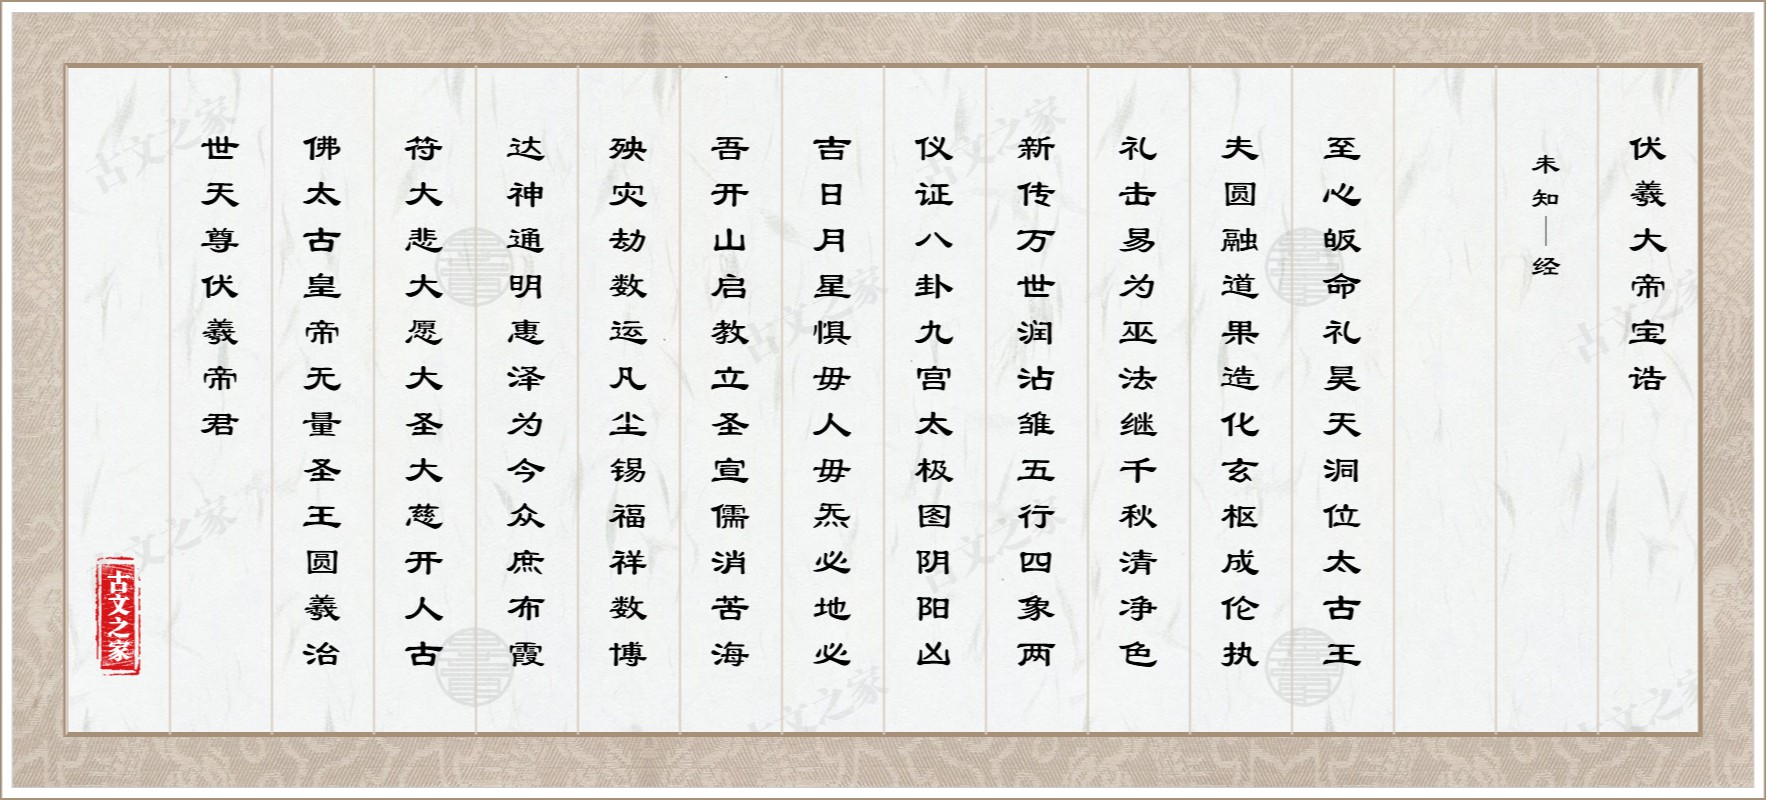 伏羲大帝宝诰
未知——经
至心皈命礼昊天洞位太古王
夫圆融道果造化玄枢成伦执
礼击易为巫法继千秋清净色
新传万世润沾雏五行四象两
仪证八卦九宫太极图阴阳凶
吉日月星惧毋人毋炁必地必
吾开山启教立圣宣儒消苦海
殃灾劫数运凡尘锡福祥数博
达神通明惠泽为今众庶布霞
符大悲大愿大圣大慈开人古
佛太古皇帝无量圣王圆羲治
世天尊伏羲帝君
古文之家